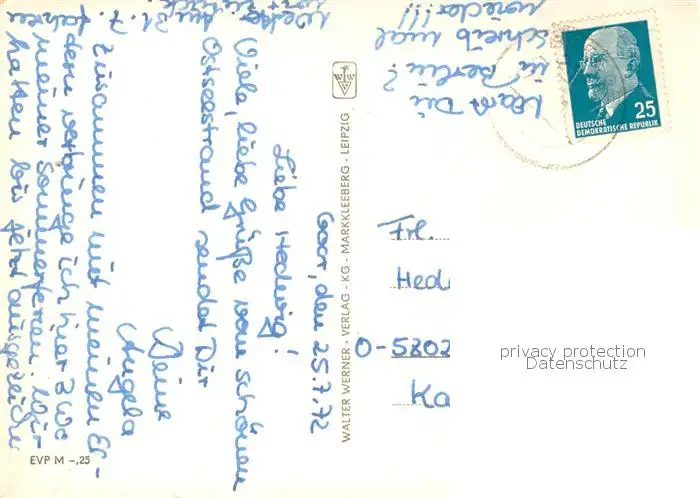 Gaor, den 25.7.72
Liebe Hedwig!
Viele, liebe Grüße vom schönen
Ostseestrand sendet Dir
Deine
Angela
Zusammen mit meinen El-
tern verbringe ich hier 3 Wo
meiner Sommerferien. Wir
hatten bis jetzt ausgezeichn
Wetter.
Am 31. 7. fahren
Warst Du
in Berlin?
Schreib mal
wieder!!!
25
DEUTSCHE
DEMOKRATISCHE REPUBLIK
WALTER WERNER - VERLAG - KG - MARKKLEEBERG - LEIPZIG
Frl.
Hed
O-5802
Ka
privacy protection
Datenschutz
EVP M -,25